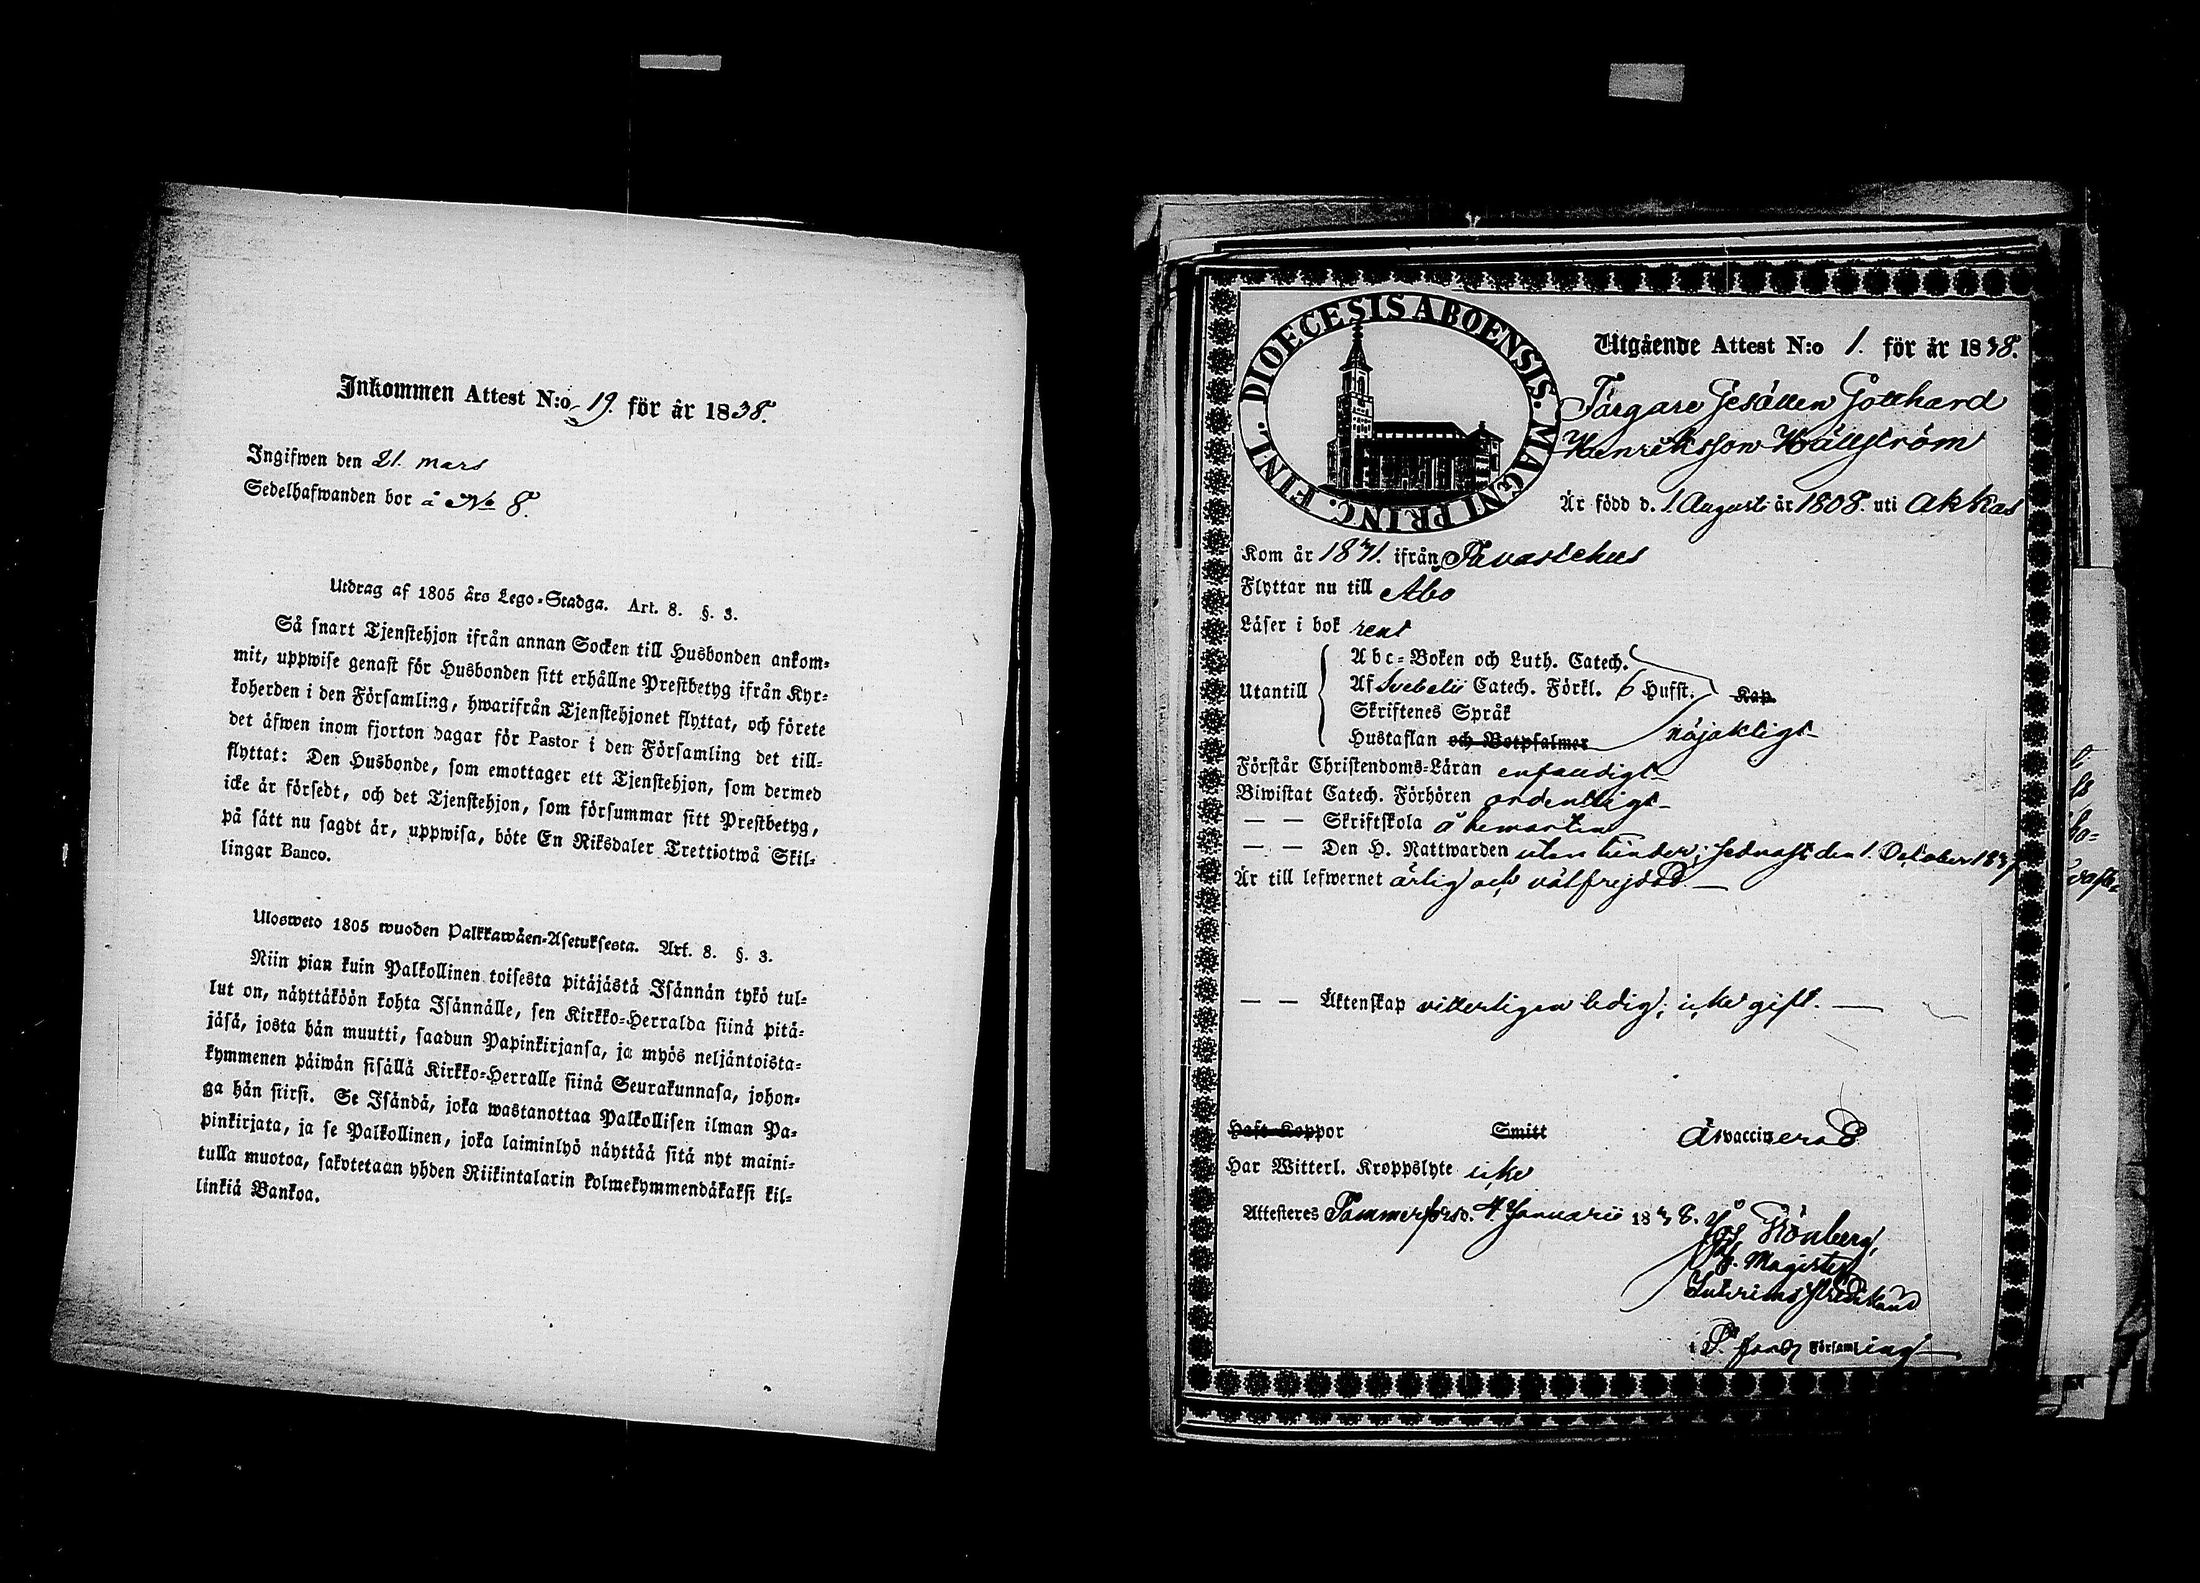 Inkommen Attest N:o 19. för år 1838.
Ingifwen den 21. mars
Sedelhafwanden bor å No 8.
Utdrag af 1805 års Lego-Stadga. Art. 8. §. 3.
Så snart Tjenstehjon ifrån annan Socken till Husbonden ankom-
mit, uppwise genast för Husbonden sitt erhållne Prestbetyg ifrån Kyr-
koherden i den Församling, hwarifrån Tjenstehjonet flyttat, och förete
det äfwen inom fjorton dagar för Pastor i den Församling det till-
flyttat: Den Husbonde, som emottager ett Tjenstehjon, som dermed
icke är försedt, och det Tjenstehjon, som försummar sitt Prestbetyg,
på sätt nu sagdt är, uppwisa, böte En Riksdaler Trettiotwå Skil-
lingar Banco.
Ulosweto 1805 wuoden Palkkawäen-Asetuksesta. Art. 8. §. 3.
Niin pian kuin Palkollinen toisesta pitäjästä Isännän tykö tul-
lut on, näyttäköön kohta Isännälle, sen Kirkko-Herralda siinä pitä-
jäsä, josta hän muutti, saadun Papinkirjansa, ja myös neljäntoista-
kymmenen päiwän sisällä Kirkko-Herralle siinä Seurakunnasa, johon-
ga hän siirsi. Se Isändä, joka wastanottaa Palkollisen ilman Pa-
pinkirjata, ja se Palkollinen, joka laiminlyö näyttää sitä nyt maini-
tulla muotoa, sakotetaan yhden Riikintalarin kolmekymmendäkaksi kil-
linkiä Bankoa.
DIOECESIS ABOENSIS. MAGNI PRINC. FINL.
Utgående Attest N:o 1. för år 1838.
Färgare Gesällen Gotthard
Henriksson Hällström
Är född d. 1 Augusti år 1808. uti Akkas
Kom år 1831. ifrån Tavastehus
Flyttar nu till Åbo
Läser i bok rent
Abc-Boken och Luth. Catech.
Utantill Af Svebelii Catech. Förkl. 6 Hufst. Kap.
Skriftenes Språk
Hustaflan och Botpsalmer nöjaktigt
Förstår Christendoms-Läran enfaldigt
Biwistat Catech. Förhören ordentligt
— — Skriftskola
— — Den H. Nattwarden utan hinder; sednast den 1. October 1837
Är till lefwernet ärlig och välfrejdad.
— — Äktenskap vitterligen ledig; icke gift.
Haft Koppor Smitt Är vaccinerad
Har Witterl. Kroppslyte icke
Attesteres Tammerfors d. 4. Januarii 1838.
Grönberg,
Magister
i församling